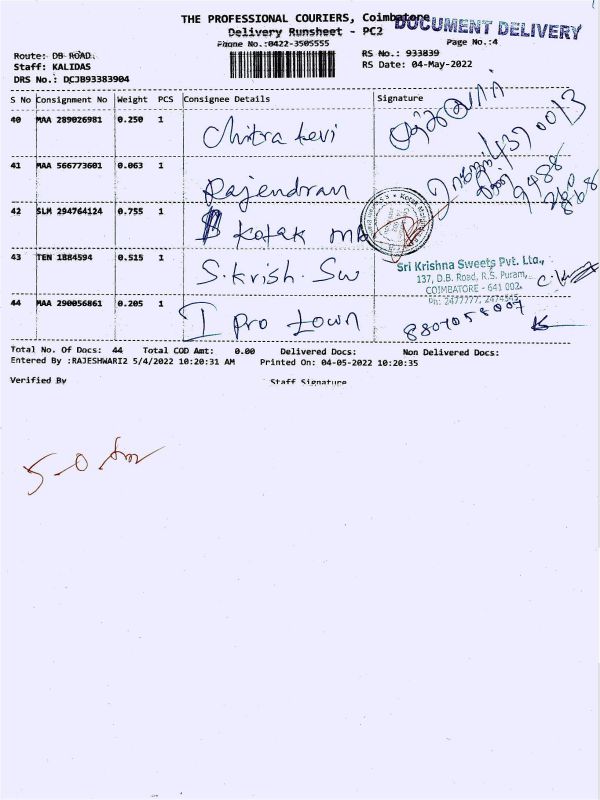 THE PROFESSIONAL COURIERS, Coimbatore
DOCUMENT DELIVERY
Delivery Runsheet - PC2
Phone No.:0422-3505555
Page No.:4
Route: DB ROAD.
RS No.: 933839
Staff: KALIDAS
RS Date: 04-May-2022
DRS No.: DCJB93383904
S No Consignment No Weight PCS Consignee Details Signature
40 MAA 289026981 0.250 1 Chitra
41 MAA 566773601 0.063 1 Rajendran
42 SLM 294764124 0.755 1 Kotak
43 TEN 1884594 0.515 1 S.Krish. Sw
Sri Krishna Sweets Pvt. Ltd.,
137, D.B. Road, R.S. Puram,
COIMBATORE - 641 002.
Ph: 2477777, 2474343
44 MAA 290056861 0.205 1 I pro town
Total No. Of Docs: 44 Total COD Amt: 0.00 Delivered Docs: Non Delivered Docs:
Entered By :RAJESHWARI2 5/4/2022 10:20:31 AM Printed On: 04-05-2022 10:20:35
Verified By Staff Signature